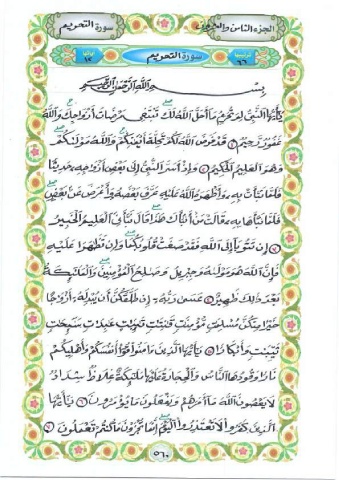 سورة التحريم
الجزء الثامن والعشرون
ترتيبها ٦٦
سورة التحريم
آياتها ١٢
بِسْمِ اللَّهِ الرَّحْمَٰنِ الرَّحِيمِ
يَا أَيُّهَا النَّبِيُّ لِمَ تُحَرِّمُ مَا أَحَلَّ اللَّهُ لَكَ تَبْتَغِي مَرْضَاتَ أَزْوَاجِكَ وَاللَّهُ
غَفُورٌ رَحِيمٌ ١ قَدْ فَرَضَ اللَّهُ لَكُمْ تَحِلَّةَ أَيْمَانِكُمْ وَاللَّهُ مَوْلَاكُمْ
وَهُوَ الْعَلِيمُ الْحَكِيمُ ٢ وَإِذْ أَسَرَّ النَّبِيُّ إِلَىٰ بَعْضِ أَزْوَاجِهِ حَدِيثًا
فَلَمَّا نَبَّأَتْ بِهِ وَأَظْهَرَهُ اللَّهُ عَلَيْهِ عَرَّفَ بَعْضَهُ وَأَعْرَضَ عَنْ بَعْضٍ
فَلَمَّا نَبَّأَهَا بِهِ قَالَتْ مَنْ أَنْبَأَكَ هَٰذَا قَالَ نَبَّأَنِيَ الْعَلِيمُ الْخَبِيرُ
٣ إِنْ تَتُوبَا إِلَى اللَّهِ فَقَدْ صَغَتْ قُلُوبُكُمَا وَإِنْ تَظَاهَرَا عَلَيْهِ
فَإِنَّ اللَّهَ هُوَ مَوْلَاهُ وَجِبْرِيلُ وَصَالِحُ الْمُؤْمِنِينَ وَالْمَلَائِكَةُ
بَعْدَ ذَٰلِكَ ظَهِيرٌ ٤ عَسَىٰ رَبُّهُ إِنْ طَلَّقَكُنَّ أَنْ يُبْدِلَهُ أَزْوَاجًا
خَيْرًا مِنْكُنَّ مُسْلِمَاتٍ مُؤْمِنَاتٍ قَانِتَاتٍ تَائِبَاتٍ عَابِدَاتٍ سَائِحَاتٍ
ثَيِّبَاتٍ وَأَبْكَارًا ٥ يَا أَيُّهَا الَّذِينَ آمَنُوا قُوا أَنْفُسَكُمْ وَأَهْلِيكُمْ
نَارًا وَقُودُهَا النَّاسُ وَالْحِجَارَةُ عَلَيْهَا مَلَائِكَةٌ غِلَاظٌ شِدَادٌ
لَا يَعْصُونَ اللَّهَ مَا أَمَرَهُمْ وَيَفْعَلُونَ مَا يُؤْمَرُونَ ٦ يَا أَيُّهَا
الَّذِينَ كَفَرُوا لَا تَعْتَذِرُوا الْيَوْمَ إِنَّمَا تُجْزَوْنَ مَا كُنْتُمْ تَعْمَلُونَ ٧
٥٦٠